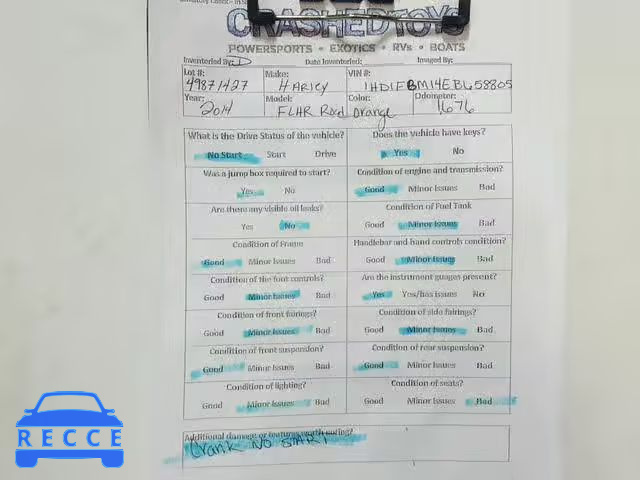 CRASHEDTOYS
POWERSPORTS • EXOTICS • RVs • BOATS
Inventoried By: D Date Inventoried: Imaged By:
Lot #: 49871427 Make: HARLEY VIN #: 1HD1FBM14EB658805
Year: 2014 Model: FLHR Road Color: orange Odometer: 1676
What is the Drive Status of the vehicle? Does the vehicle have keys?
No Start Start Drive Yes No
Was a jump box required to start? Condition of engine and transmission?
Yes No Good Minor Issues Bad
Are there any visible oil leaks? Condition of Fuel Tank
Yes No Good Minor Issues Bad
Condition of Frame Handlebar and hand controls condition?
Good Minor Issues Bad Good Minor Issues Bad
Condition of the foot controls? Are the instrument guages present?
Good Minor Issues Bad Yes Yes/has issues No
Condition of front fairings? Condition of side fairings?
Good Minor Issues Bad Good Minor Issues Bad
Condition of front suspension? Condition of rear suspension?
Good Minor Issues Bad Good Minor Issues Bad
Condition of lighting? Condition of seats?
Good Minor Issues Bad Good Minor Issues Bad
Additional damage or features worth noting?
Crank NO START
RECCE